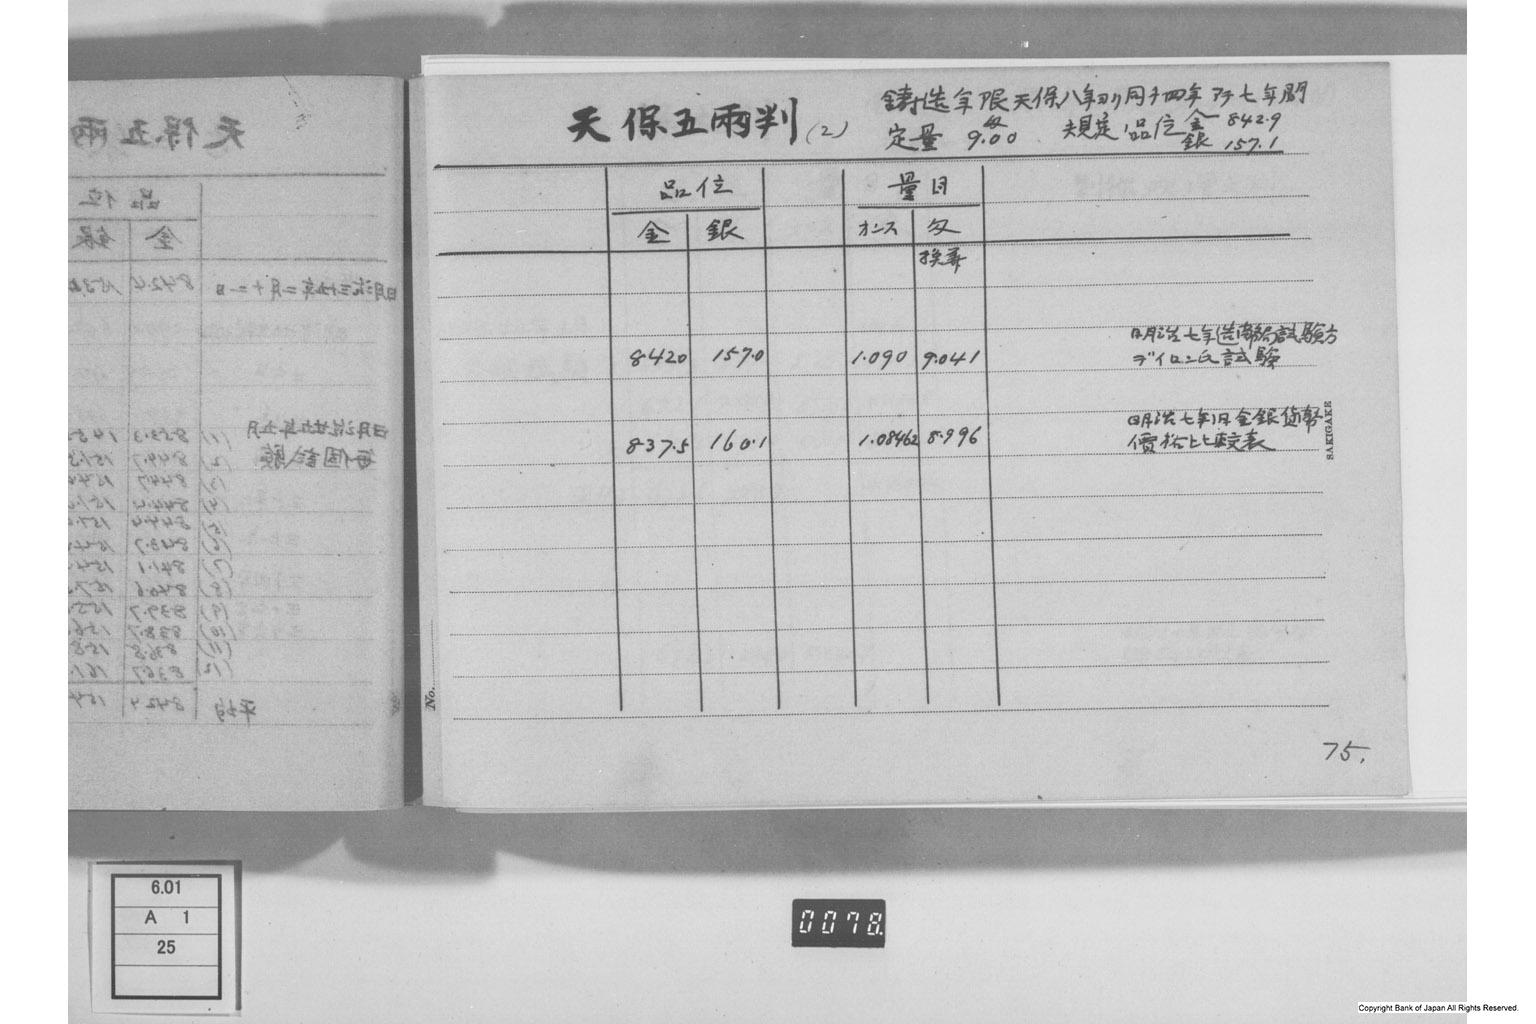 天保五兩判(2)
鋳造年限天保八年ヨリ同十四年マデ七年間
定量 匁 9.00 規定品位 金 842.9
銀 157.1
品位 量目
金 銀 オンス 匁
換算
明治七年造幣局試験方
842.0 157.0 1.090 9.041 ディロン氏試験
明治七年旧金銀貨幣
837.5 160.1 1.08462 8.996 價格比較表
SAKIGAKE
No.
75.
天保五兩
品位
金 銀
明治三十五年二月十二日 842.4
明治廿五年五月
毎個試験
(1) 853.3
(2) 844.7
(3) 844.7
(4) 844.4
(5) 844.4
(6) 843.7
(7) 841.1
(8) 840.6
(9) 839.7
(10) 838.7
(11)
(12)
平均 842.4
6.01
A 1
25
0078
Copyright Bank of Japan All Rights Reserved.